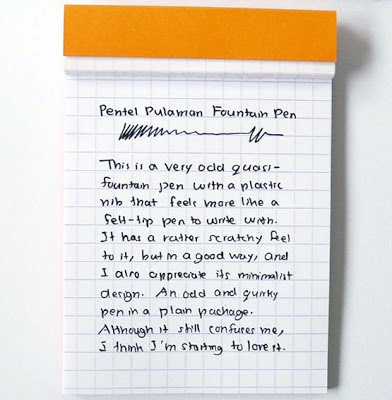 Pentel Pulaman Fountain Pen
This is a very odd quasi-
fountain pen with a plastic
nib that feels more like a
felt-tip pen to write with.
It has a rather scratchy feel
to it, but in a good way, and
I also appreciate its minimalist
design. An odd and quirky
pen in a plain package.
Although it still confuses me,
I think I'm starting to love it.